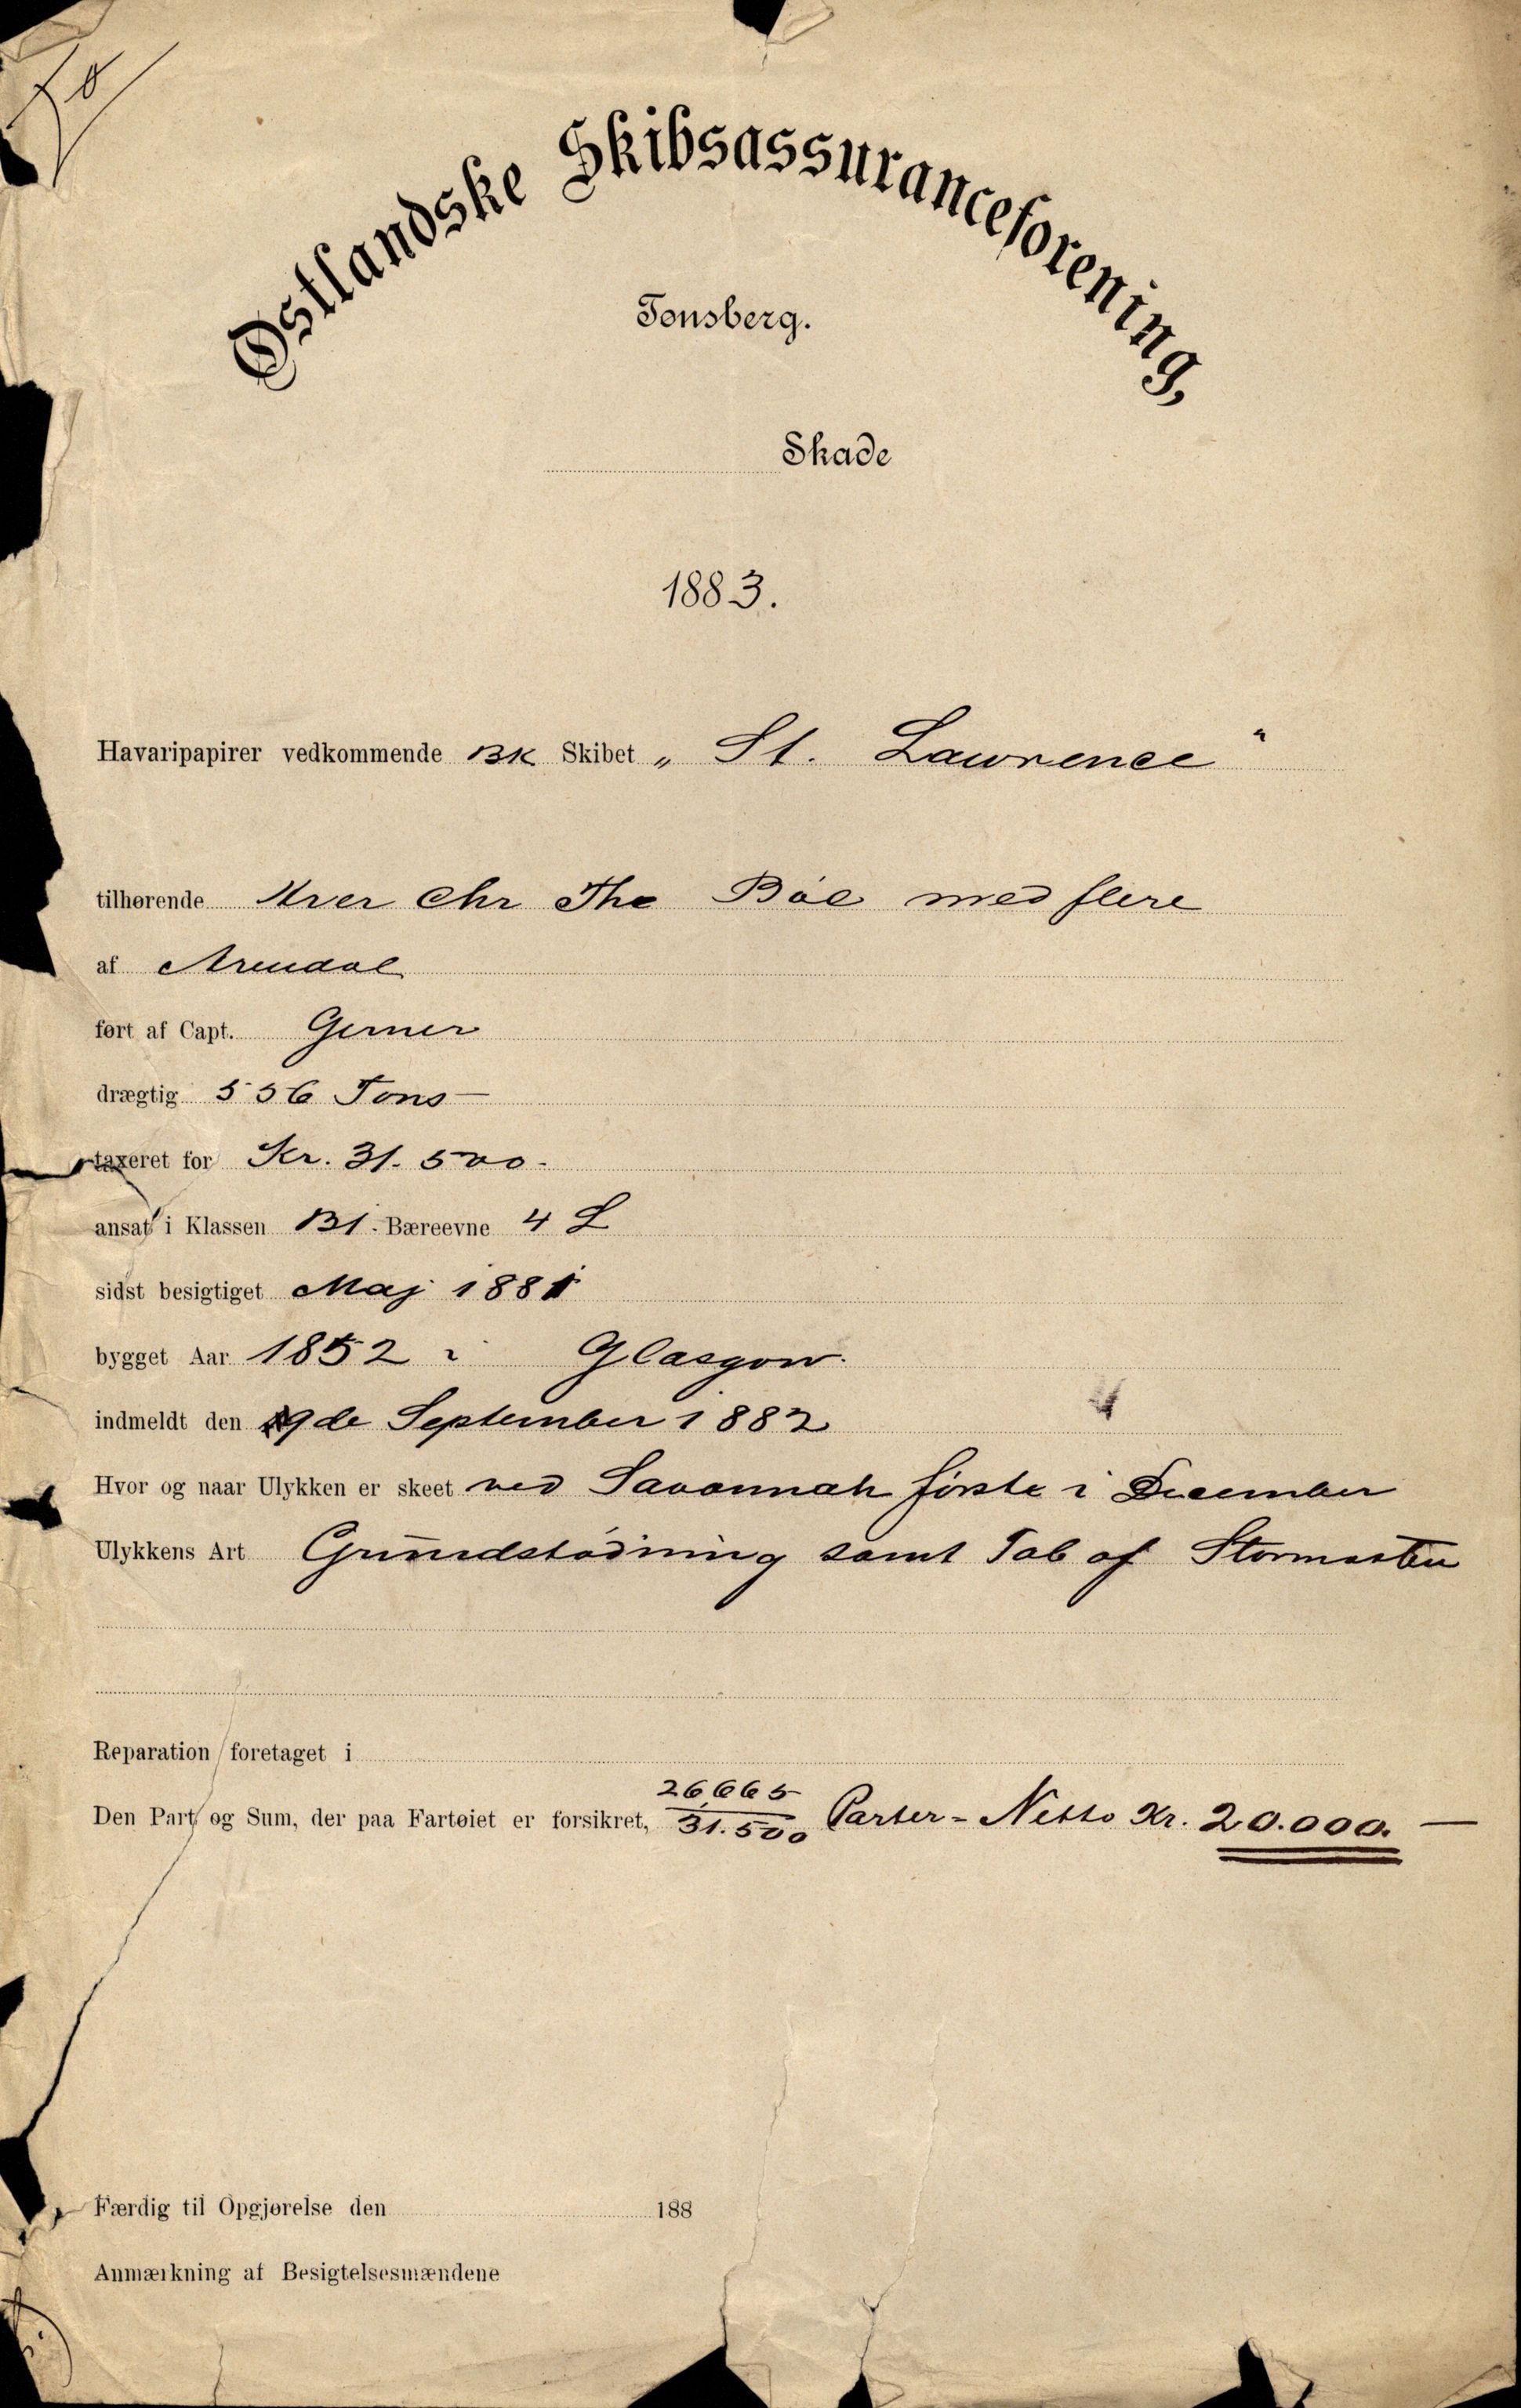 Østlandske Skibsassuranceforening,
Tønsberg.
Skade
1883.
Havaripapirer vedkommende BK Skibet „ St. Lawrence "
tilhørende Hrer Chr Tho Bøe med flere
af Arendal
ført af Capt. Gerner
drægtig 556 Tons —
taxeret for Kr. 31.500 -
ansat i Klassen B1. Bæreevne 4 L
sidst besigtiget Maj 1881
bygget Aar 1852 i Glasgow.
indmeldt den 9de September 1882
Hvor og naar Ulykken er skeet ved Savannah første i December
Ulykkens Art Grundstødning samt Tab af Stormasten
Reparation foretaget i
Den Part og Sum, der paa Fartøiet er forsikret, 26,665/31.500 Parter = Netto Kr. 20.000. —
Færdig til Opgjørelse den 188
Anmærkning af Besigtelsesmændene